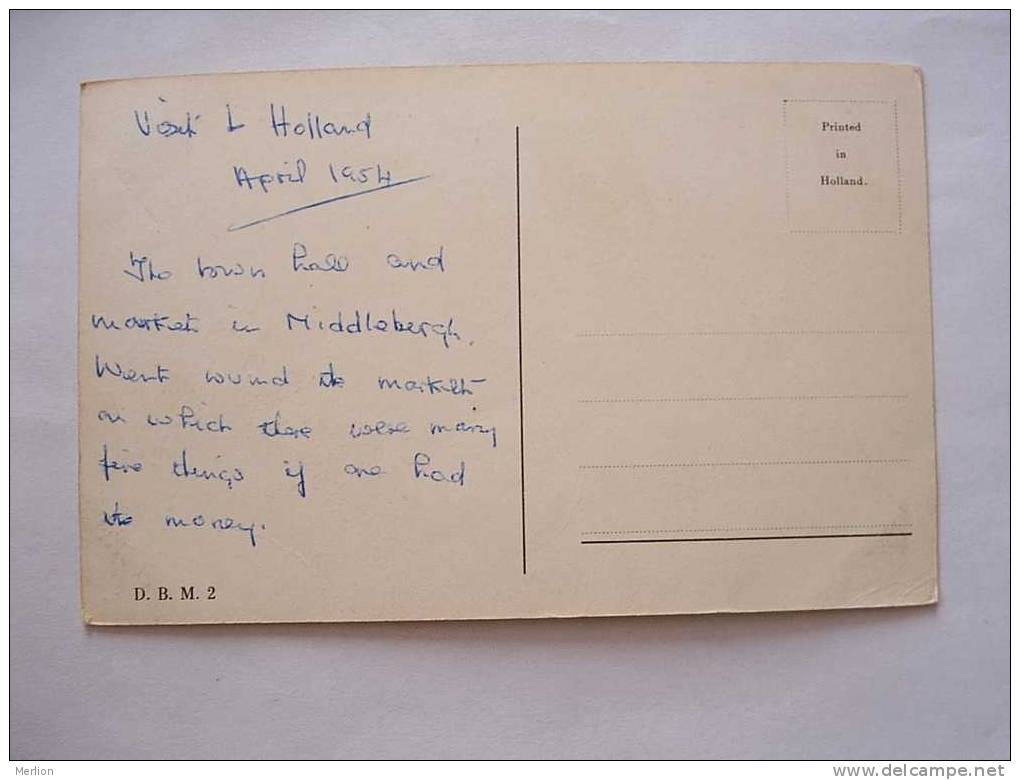 Visit to Holland
April 1954
The town hall and
market in Middlebergh.
Went round the market
on which there were many
fine things if one had
the money.
D. B. M. 2
Printed
in
Holland.
Merlion
www.delcampe.net